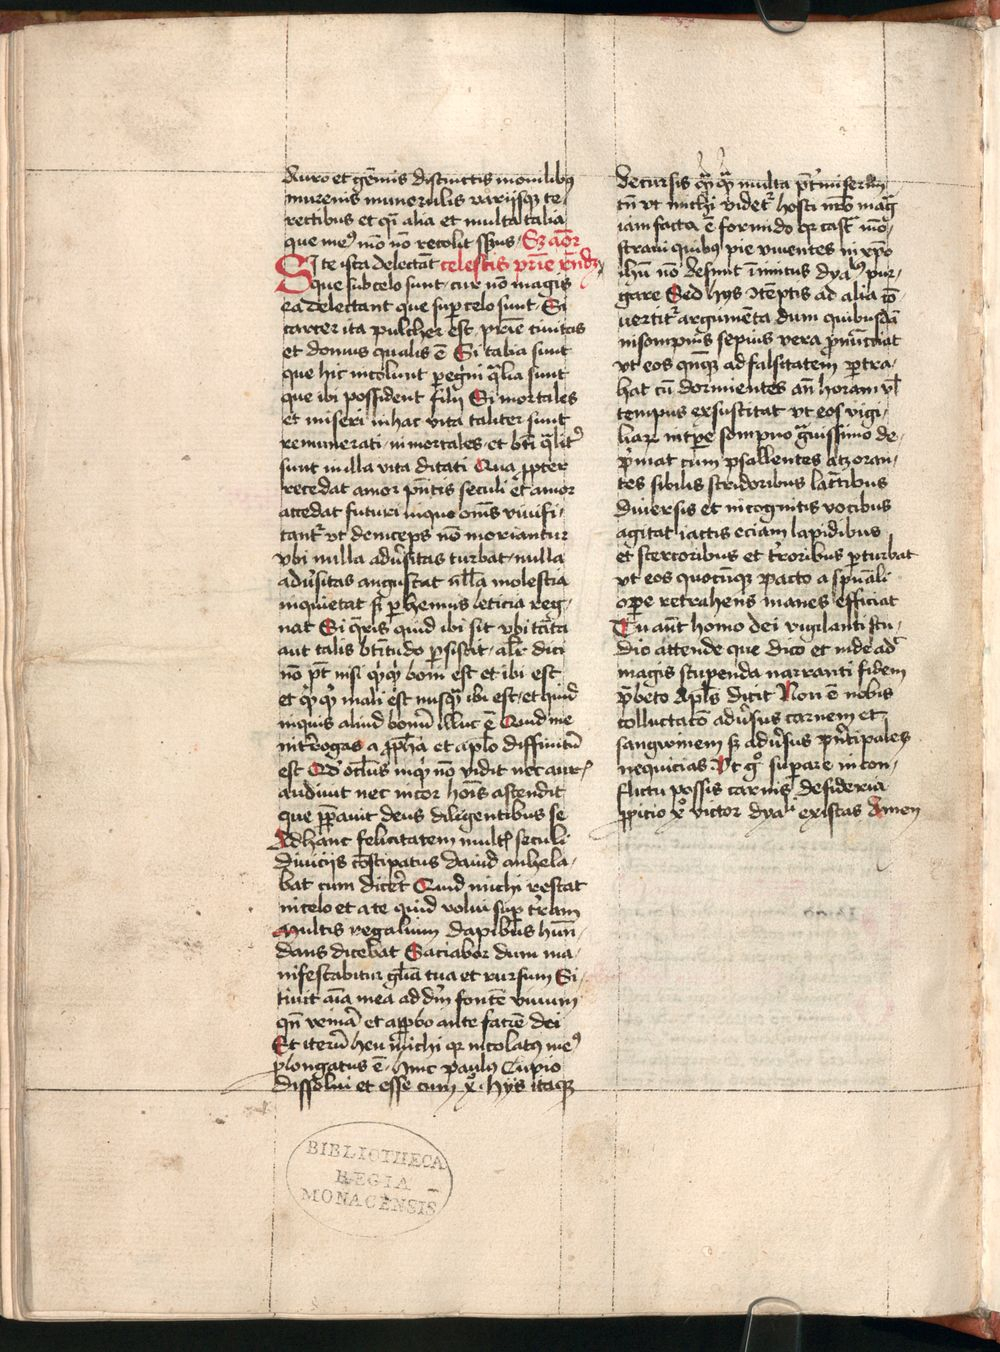 Auro et gēmis distinctis monilibꝰ
murenis mūnerulis varijsqꝫ te-
rectibus et qͥ alia et multa talia
que meꝰ mō nō recolit sꝫus. Sꝫ amor
Si te ista delectāt celestis prīe
que sub celo sunt. cur nō magis
ea delectant que super celo sunt. Si
carcer ita pulcher est. prīe ciuitas
et domus qualis ē Si talia sunt
que hic incolunt peregͥni qͣlia sunt
que ibi possident filij Si mortales
et miseri in hac vita taliter sunt
remunerati. inmortales. et bt̄i qͣlitˀ
sunt in illa vita ditati Qua ꝓpter
recedat amor pn̄tis seculi et amor
accedat futuri inquo om̄s viuifi-
cantˀ vt deinceps nō moriantur
vbi nulla adūsitas turbat. nulla
adūsitas angustat nl̄la molestia
inquietat sꝫ perhennis leticia reg-
nat Si qͣris quid ibi sit vbi tāta
aut talis bt̄itudo persistit. alr̄ dici
nō pt̄ nisi qͥcqͥd boni est et ibi est
et qͥcqͥd mali est nusqͣ ibi est. et quid
inquis aliud bonū illuc ē Quid me
interrogas a ꝓph̄a et apl̄o diffinitū
est Qd̄ oc̄lus inqͥt nō vidit nec auris
audiuit nec in cor hoīs ascendit
que pparauit deus diligentibus se
Ad hanc felicitatem multꝭ seculi
diuicijs cōstipatus dauid anhela-
bat cum dicer̄t Quid michi restat
in celo et a te quid volui sup terram
Multis regalium dapibus hūn-
dans dicebat Saciabor dum ma-
nifestabitur gl̄ia tua et rursum Si-
tiuit aīa mea ad dm̄ fontē viuum
qn̄ veniā et apparebo ante faciē dei
Et iterū heu michi qꝛ incolatꝰ meꝰ
prolongatus ē. hinc paulus Cupio
dissolui et esse cum xͦ. hijs itaqꝫ
decursis qͣqͣ multa pt̄
tn̄ vt michi videtˀ hosti nr̄o magͣ
iam facta ē formido qꝛ castˀ mō-
straui quibus pie viuentes in xp̄o
ihū nō desinit inimicus dyabolꝰ pur-
gare Sed hijs ꝯtēptis ad alia cō-
uertitˀ argumēta dum quibusdā
insompnijs sepius vera pronūcciat
vt eos qn̄qꝫ ad falsitatem pertra-
hat cū dormientes an̄ horam vl̄
tempus exsuscitat vt eos vigi-
liarum tempore sompno gͣuissimo de-
pͥmat cum psallentes atqꝫ oran-
tes sibilis stridoribus latratibus
diuersis et incognitis vocibus
agitat iactis eciam lapidibus
et stercoribus et terroribus perturbat
vt eos quocūqꝫ pacto a spūali
opere retrahens inanes efficiat
Tu aūt homo dei vigilanti stu-
dio attende que dico et inde ad
magis stupenda narranti fidem
prebeto Apl̄s dicit Non ē nobis
colluctacō adūsus carnem et
sangwinem sꝫ adūsus pn̄cipales
nequicias Vt gͦ superare in con-
flictu possis carnis desideria
ꝓpicio xͦ victor dyaboli existas Amen
BIBLIOTHECA
REGIA
MONACENSIS